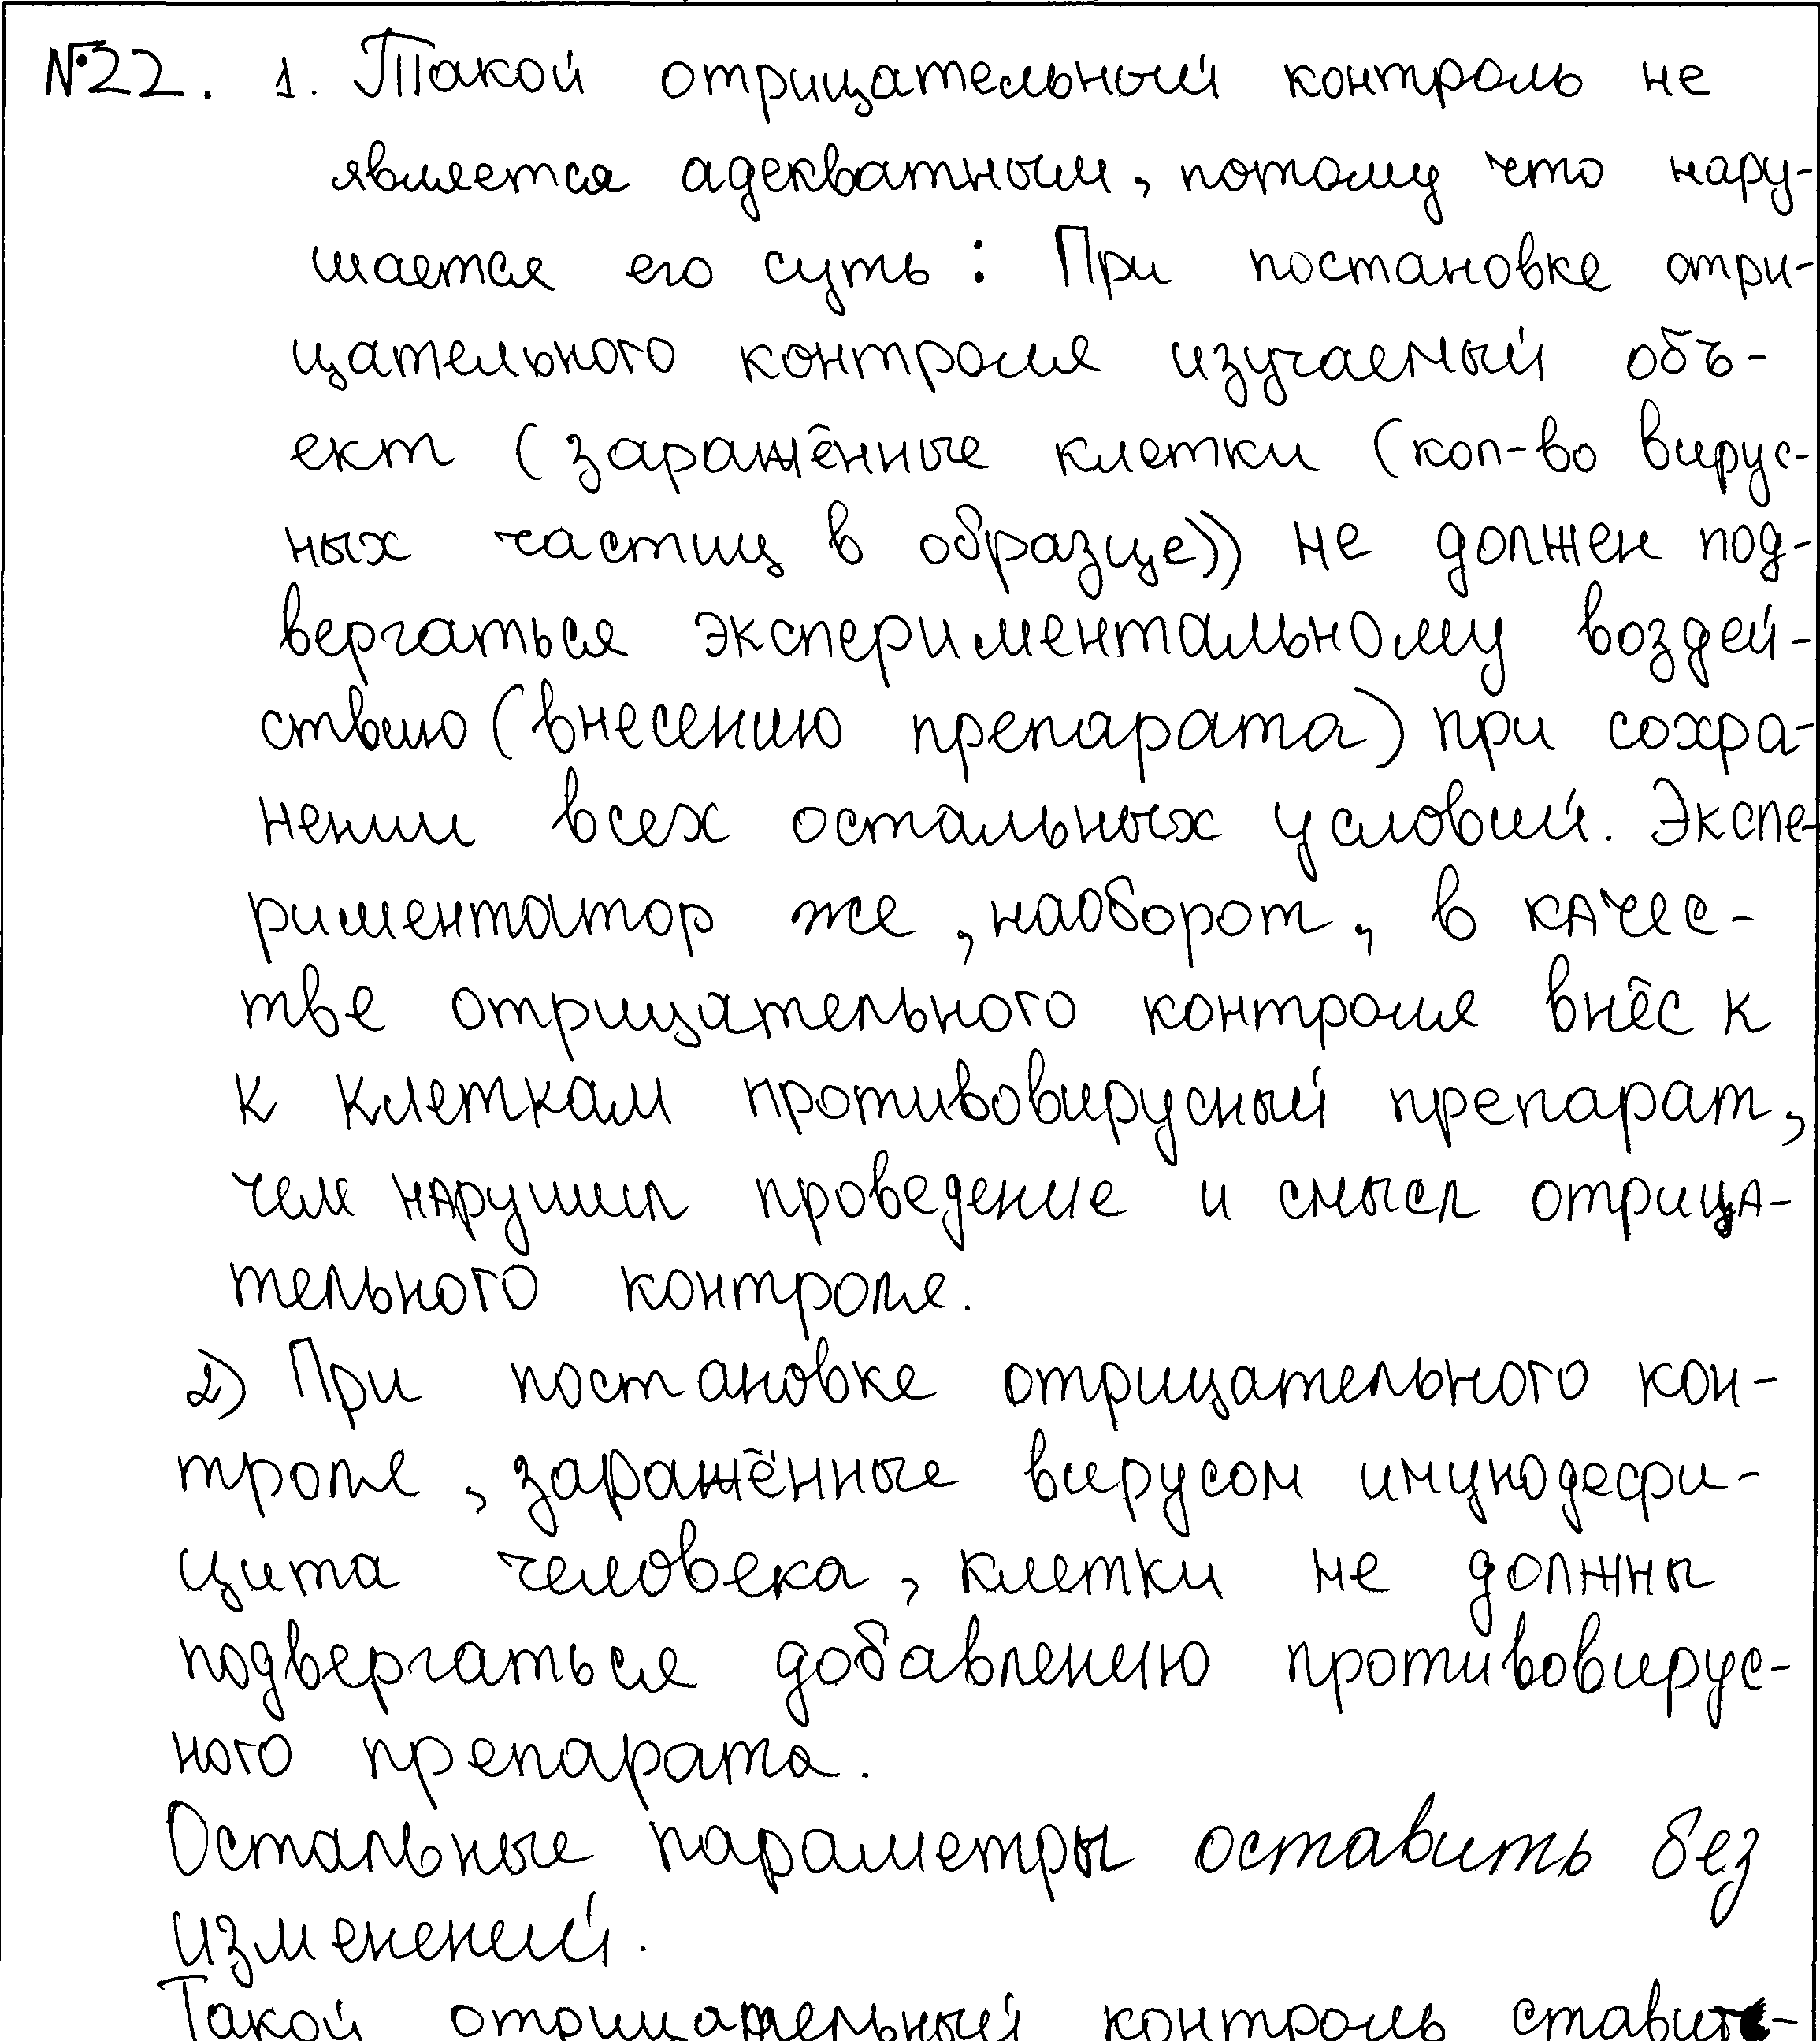 №22. 1. Такой отрицательный контроль не
является адекватным, потому что нару-
шается его суть: При постановке отри-
цательного контроля изучаемый объ-
ект (заражённые клетки (кол-во вирус-
ных частиц в образце)) не должен под-
вергаться экспериментальному воздей-
ствию (внесению препарата) при сохра-
нении всех остальных условий. Экспе-
риментатор же, наоборот, в качес-
тве отрицательного контроля внёс к
к клеткам противовирусный препарат,
чем нарушил проведение и смысл отрица-
тельного контроля.
2) При постановке отрицательного кон-
троля, заражённые вирусом имунодефи-
цита человека, клетки не должны
подвергаться добавлению противовирус-
ного препарата.
Остальные параметры оставить без
изменений.
Такой отрицательный контроль ставит-